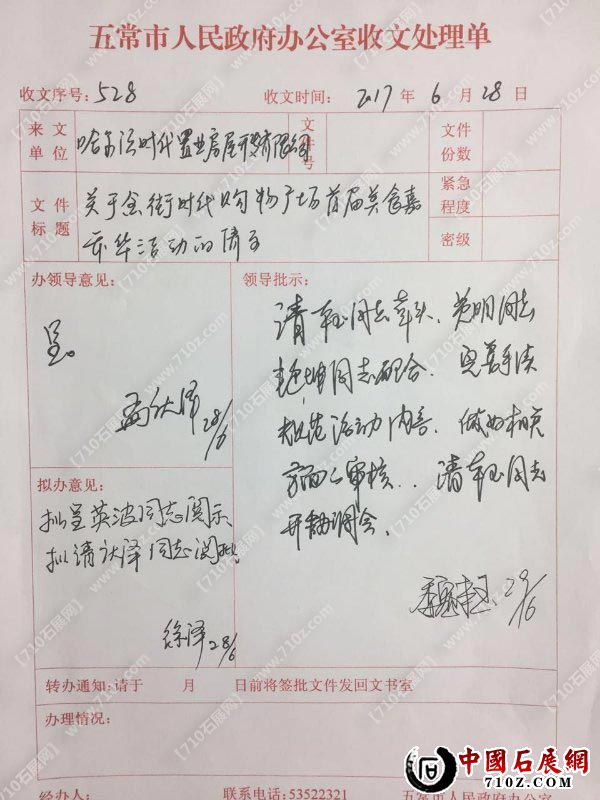 五常市人民政府办公室收文处理单
收文序号: 528 收文时间: 2017 年 6 月 28 日
来文单位 哈尔滨时代置业房屋开发有限公司 文件号 文件份数
文件标题 关于金街时代购物广场首届美食嘉 紧急程度
年华活动的请示 密级
办领导意见:
呈。
28/6
领导批示:
同志牵头、 同志
同志配合、完善手续
规范活动内容、做好相关
方面审核.. 请 同志
开协调会。
29/6
拟办意见:
拟呈英波同志阅示
拟请 泽同志阅批
徐泽 28/6
转办通知: 请于 月 日前将签批文件发回文书室
办理情况:
经办人: 联系电话: 53522321 五常市人民政府办公室
中國石展網
710z.com
【710石展网】www.710z.com